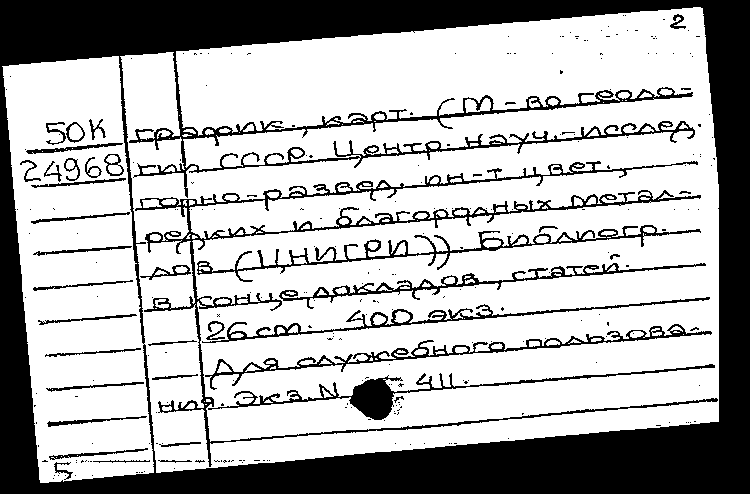 2
50К график., карт. (М-во геоло-
24968 гии СССР. Центр. науч.-исслед.
горно-развед. ин-т цвет.,
редких и благородных метал-
лов (ЦНИГРИ)). Библиогр.
в конце докладов, статей.
26 cm. 400 экз.
Для служебного пользова-
ния. Экз. N 411.
5